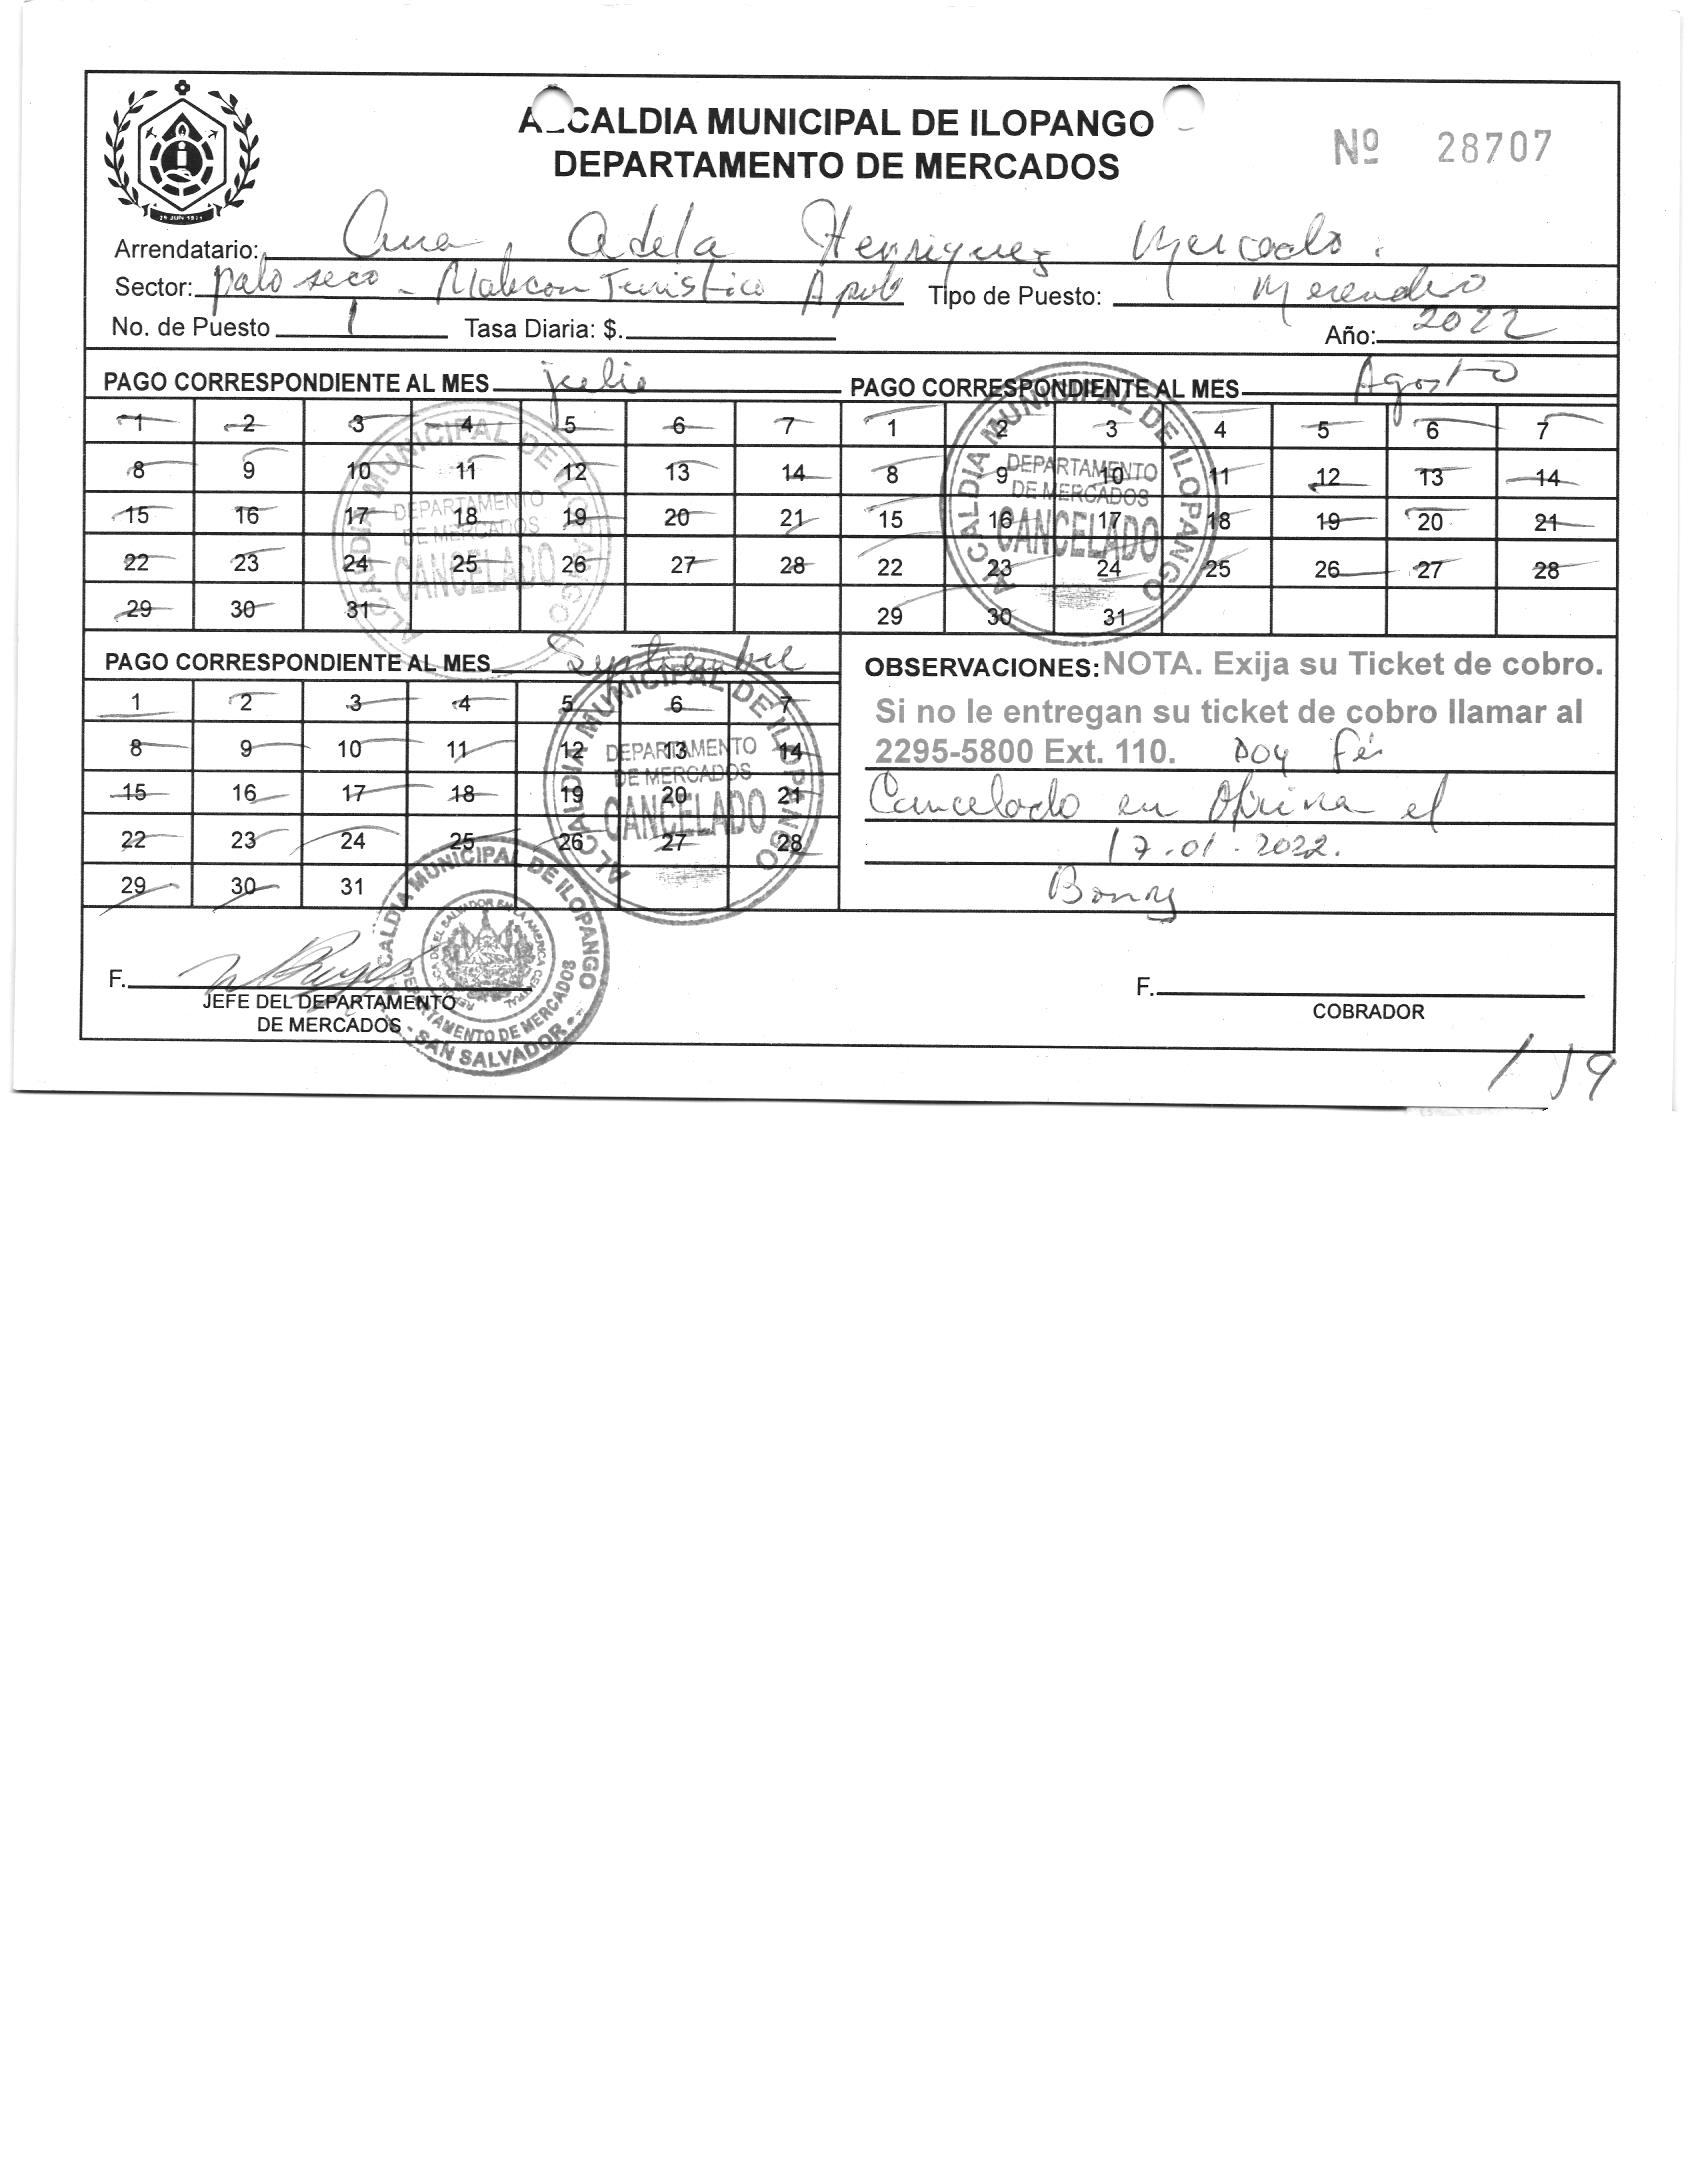 ALCALDIA MUNICIPAL DE ILOPANGO
DEPARTAMENTO DE MERCADOS
Nº 28707
29 JUN 1971
Arrendatario: Ana Adela Henriquez Mercado.
Sector: palo seco - Malecon Turistico Apulo Tipo de Puesto: Merendero
No. de Puesto 1 Tasa Diaria: $. Año: 2022
PAGO CORRESPONDIENTE AL MES julio
1 2 3 4 5 6 7
8 9 10 11 12 13 14
15 16 17 18 19 20 21
22 23 24 25 26 27 28
29 30 31
ALCALDIA MUNICIPAL DE ILOPANGO
DEPARTAMENTO
DE MERCADOS
CANCELADO
PAGO CORRESPONDIENTE AL MES Agosto
1 2 3 4 5 6 7
8 9 10 11 12 13 14
15 16 17 18 19 20 21
22 23 24 25 26 27 28
29 30 31
ALCALDIA MUNICIPAL DE ILOPANGO
DEPARTAMENTO
DE MERCADOS
CANCELADO
PAGO CORRESPONDIENTE AL MES Septiembre
1 2 3 4 5 6 7
8 9 10 11 12 13 14
15 16 17 18 19 20 21
22 23 24 25 26 27 28
29 30 31
ALCALDIA MUNICIPAL DE ILOPANGO
DEPARTAMENTO
DE MERCADOS
CANCELADO
OBSERVACIONES: NOTA. Exija su Ticket de cobro.
Si no le entregan su ticket de cobro llamar al
2295-5800 Ext. 110. Doy Fé
Cancelado en Oficina el
17-01-2022.
F.
JEFE DEL DEPARTAMENTO
DE MERCADOS
ALCALDIA MUNICIPAL DE ILOPANGO
REPUBLICA DE EL SALVADOR EN LA AMERICA CENTRAL
DEPARTAMENTO DE MERCADOS
SAN SALVADOR
F.
COBRADOR